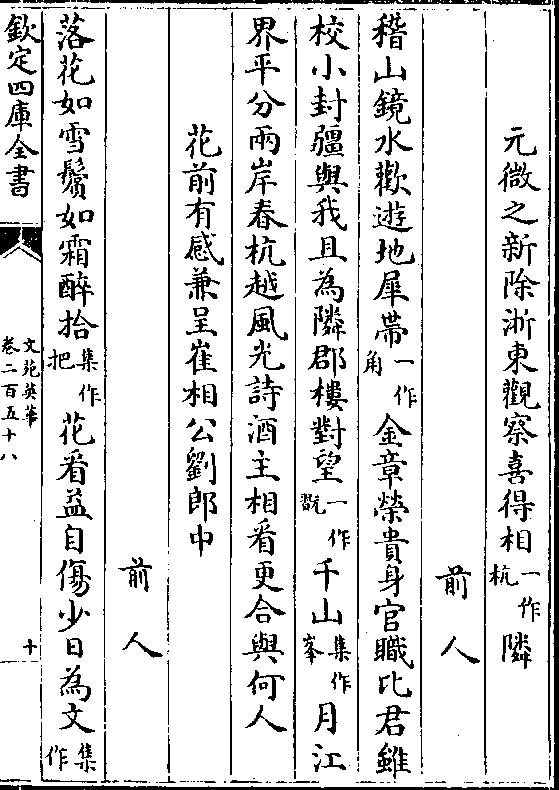 元微之新除浙東觀察喜得相一作杭隣
前人
稽山鏡水歡遊地犀帶一作角金章榮貴身官職比君雖
校小封疆與我且為隣郡樓對望一作翫千山集作峯月江
界平分兩岸春杭越風光詩酒主相看更合與何人
花前有感兼呈崔相公劉郎中
前人
落花如雪鬢如霜醉拾集作把花看益自傷少日為文集作
欽定四庫全書
文苑英華
卷二百五十八
十